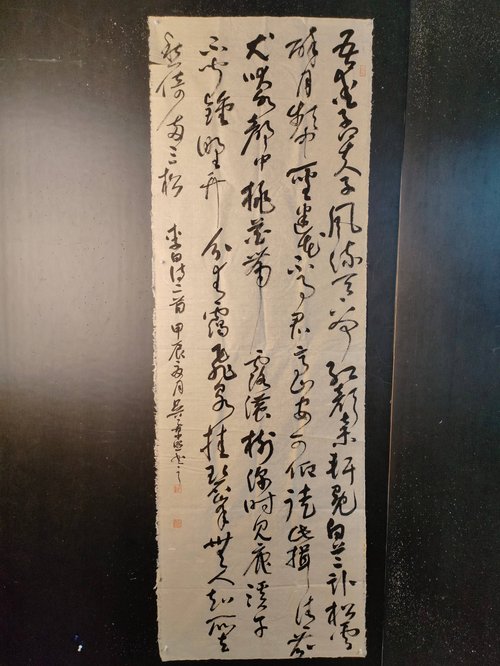 吾愛孟夫子風流天下闻紅顏棄軒冕白首卧松雲
醉月頻中聖迷花不事君高山安可仰徒此揖清芬
犬吠水聲中桃花帶露濃樹深時見鹿溪午
不闻鐘野竹分青靄飛泉挂碧峰無人知所去
愁倚兩三松 李白詩二首 甲辰夏月吴書之